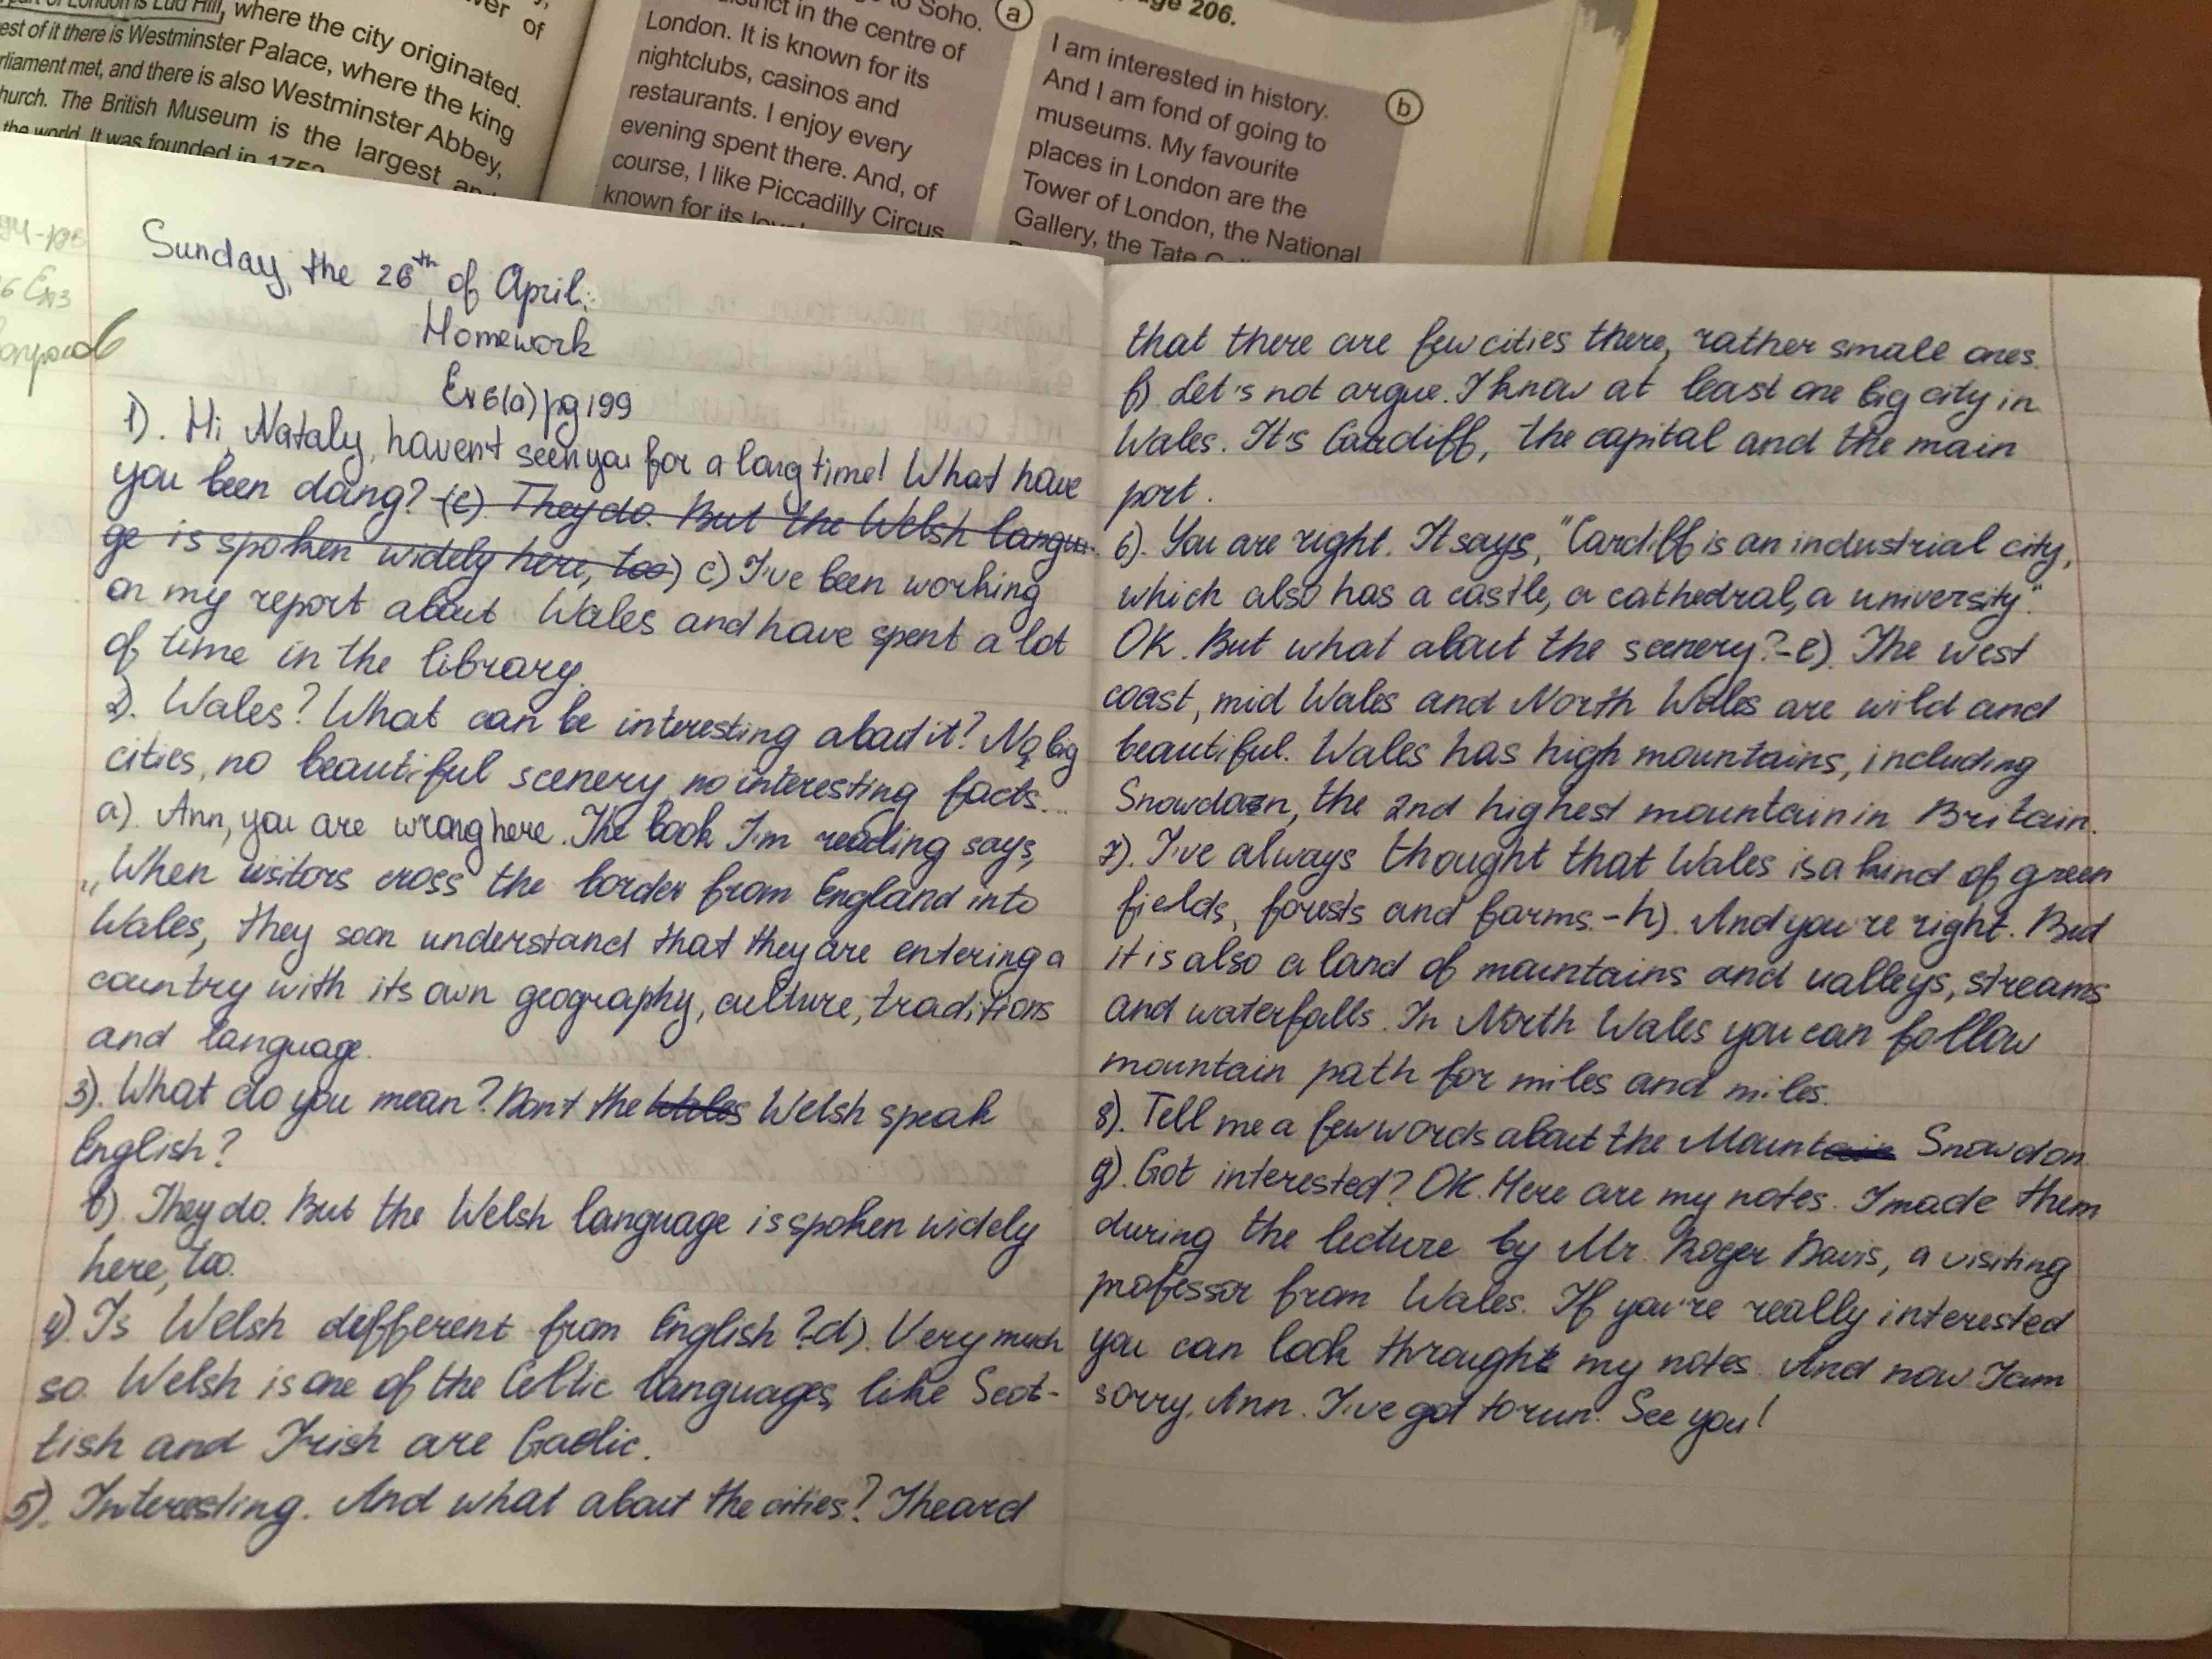 part of London is Lud Hill, where the city originated.
est of it there is Westminster Palace, where the king
rliament met, and there is also Westminster Abbey,
hurch. The British Museum is the largest
the world. It was founded in
of
to Soho.
in the centre of
London. It is known for its
nightclubs, casinos and
restaurants. I enjoy every
evening spent there. And, of
course, I like Piccadilly Circus
known for its
a
206.
I am interested in history.
And I am fond of going to
museums. My favourite
places in London are the
Tower of London, the National
Gallery, the Tate
b
Sunday, the 26th of April.
Homework
Ex 6(a) pg 199
1). Hi, Nataly, haven't seen you for a long time! What have
you been doing? (e). They do. But the Welsh langua-
ge is spoken widely here, too) c) I've been working
on my report about Wales and have spent a lot
of time in the library.
2). Wales? What can be interesting about it? No big
cities, no beautiful scenery, no interesting facts...
a). Ann, you are wrong here. The book I'm reading says,
„When visitors cross the border from England into
Wales, they soon understand that they are entering a
country with its own geography, culture, traditions
and language.
3). What do you mean? Don't the Wales Welsh speak
English?
b). They do. But the Welsh language is spoken widely
here, too.
4). Is Welsh different from English? -d). Very much
so. Welsh is one of the Celtic languages, like Scot-
tish and Irish are Gaelic.
5). Interesting. And what about the cities? I heard
that there are few cities there, rather small ones.
f). Let's not argue. I know at least one big city in
Wales. It's Cardiff, the capital and the main
port.
6). You are right. It says, "Cardiff is an industrial city,
which also has a castle, a cathedral, a university."
OK. But what about the scenery? -e). The west
coast, mid Wales and North Wales are wild and
beautiful. Wales has high mountains, including
Snowdon, the 2nd highest mountain in Britain.
7). I've always thought that Wales is a kind of green
fields, forests and farms. -h). And you're right. But
it is also a land of mountains and valleys, streams
and waterfalls. In North Wales you can follow
mountain path for miles and miles.
8). Tell me a few words about the Mountain Snowdon.
g). Got interested? OK. Here are my notes. I made them
during the lecture by Mr. Roger Davis, a visiting
professor from Wales. If you're really interested
you can look throught my notes. And now I am
sorry, Ann. I've got to run. See you!